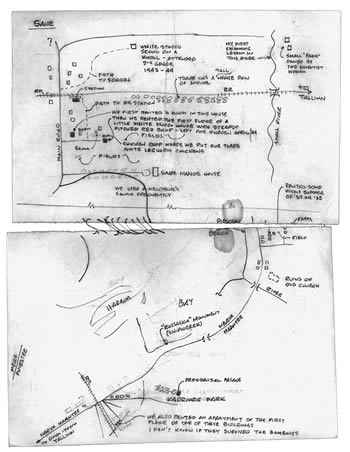 SAUE
?
WHITE STUCCO
SCHOOL ON A
KNOLL - ATTENDED
5TH GRADE
1943-44
PATH
TO SCHOOL
STATION
TALL
THERE WAS A HEDGE ROW
OF SPRUCE
MY FIRST
SWIMMING
LESSON IN
THIS RIVER
SMALL "FARM"
OWNED BY
TWO SCIENTIST
WOMEN
RR
RR
TO
TALLINN
PATH TO RR STATION
WE FIRST RENTED A ROOM IN THIS HOUSE
THEN WE RENTED THE FIRST FLOOR OF A
LITTLE WHITE STUCCO HOUSE WITH STEEPLY
PITCHED RED ROOF - LEFT FOR
FIELDS
CHICKEN COOP WHERE WE PUT OUR THREE
WHITE LEGHORN CHICKENS
FIELDS
MAIN ROAD
SMALL RIVER
SAUE MANOR HOUSE
WE USED A NEIGHBOR'S
SAUNA FREQUENTLY
RENTED SOME
ROOMS SUMMER
OF '37 OR '38
PIRITA
BEACH
FIELD
RUINS OF
OLD CHURCH
RIVER
HARBOR
BAY
"RUSSALKA" MONUMENT
NARVA
MAANTEE
MERE
PUIESTEE
NARVA MAANTEE
TO DOWN-TOWN
TALLINN
RR
PRESIDENTIAL PALACE
KADRIORG PARK
WE ALSO RENTED AN APARTMENT ON THE FIRST
FLOOR OF ONE OF THESE BUILDINGS
I DON'T KNOW IF THEY SURVIVED THE BOMBINGS